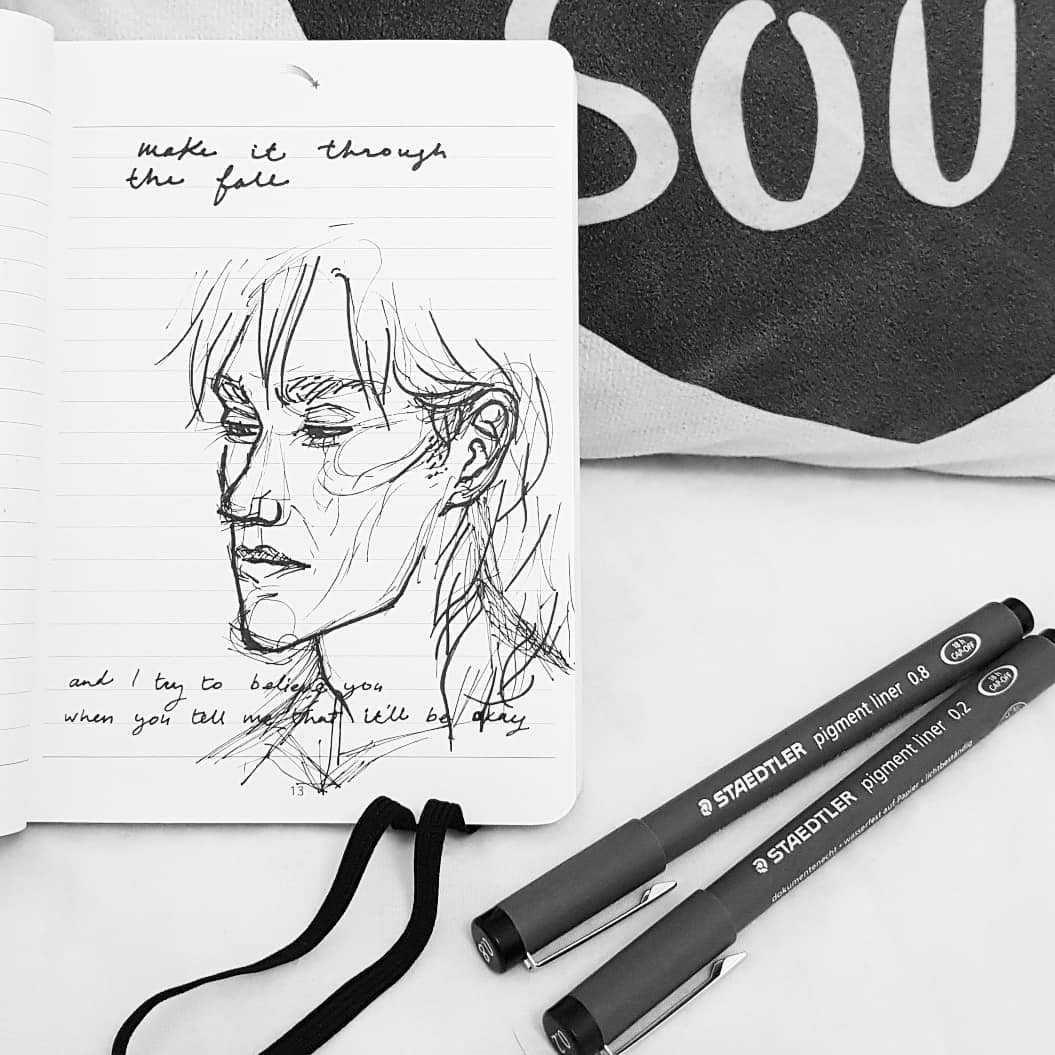 SOU
make it through
the fall
and I try to believe you
when you tell me that it'll be okay
13
STAEDTLER pigment liner 0.8
18 h
CAP-OFF
STAEDTLER pigment liner 0.2
18 h
CAP-OFF
dokumentenecht • wasserfest auf Papier • lichtbeständig
0.8
0.2